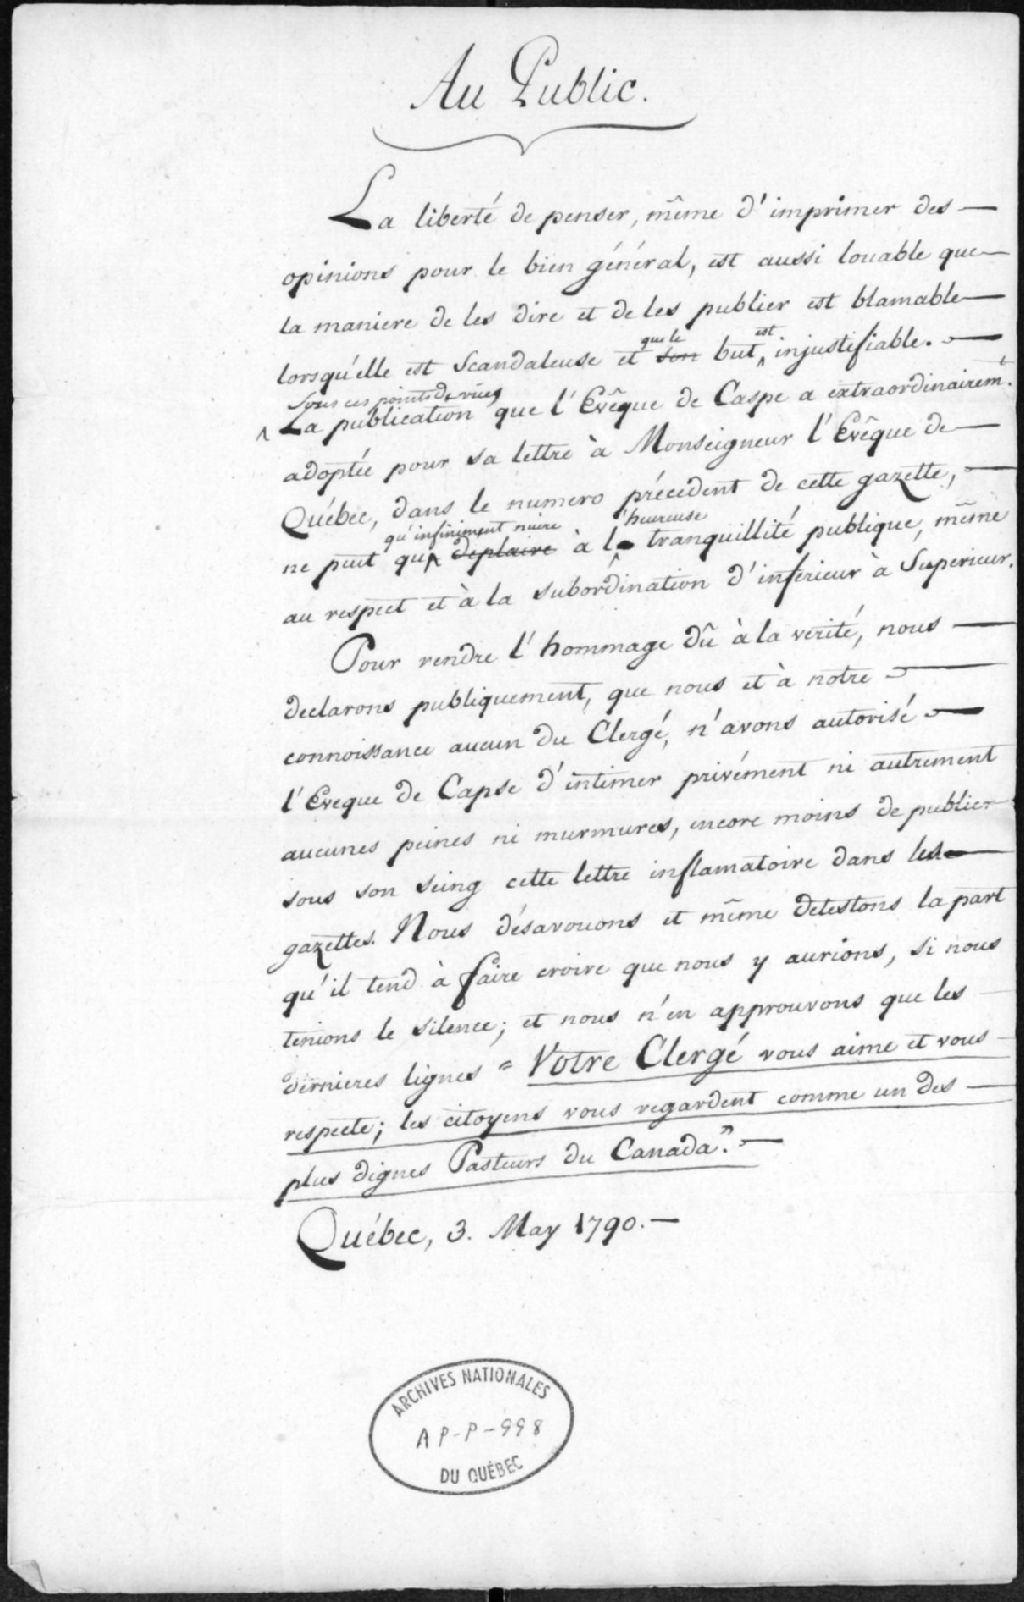 Au Public.
La liberté de penser, même d'imprimer des —
opinions pour le bien général, est aussi louable que —
la maniere de les dire et de les publier est blamable —
que le est
lorsqu'elle est Scandaleuse et son but injustifiable. —
Sous ces points de vües
La publication que l'Evêque de Caspe a extraordinairemt.
adoptée pour sa lettre à Monseigneur l'Evêque de —
Québec, dans le numero précedent de cette gazette, —
qu'infiniment nuire l'heureuse
ne peut que deplaire à la tranquillité publique, même
au respect et à la subordination d'inférieur à Superieur.
Pour rendre l'hommage dû à la verité, nous —
declarons publiquement, que nous et à notre —
connoissance aucun du Clergé, n'avons autorisé —
l'Eveque de Capse d'intimer privément ni autrement
aucunes peines ni murmures, encore moins de publier
sous son seing cette lettre inflamatoire dans les —
gazettes. Nous désavouons et même detestons la part
qu'il tend à faire croire que nous y aurions, si nous
tenions le silence; et nous n'en approuvons que les
dernieres lignes " Votre Clergé vous aime et vous —
respecte; les citoyens vous regardent comme un des —
plus dignes Pasteurs du Canada". —
Québec, 3. May 1790. —
ARCHIVES NATIONALES
AP-P-998
DU QUÉBEC